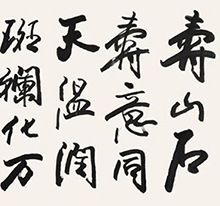 寿山石
寿意同
天温润
斑斓化万